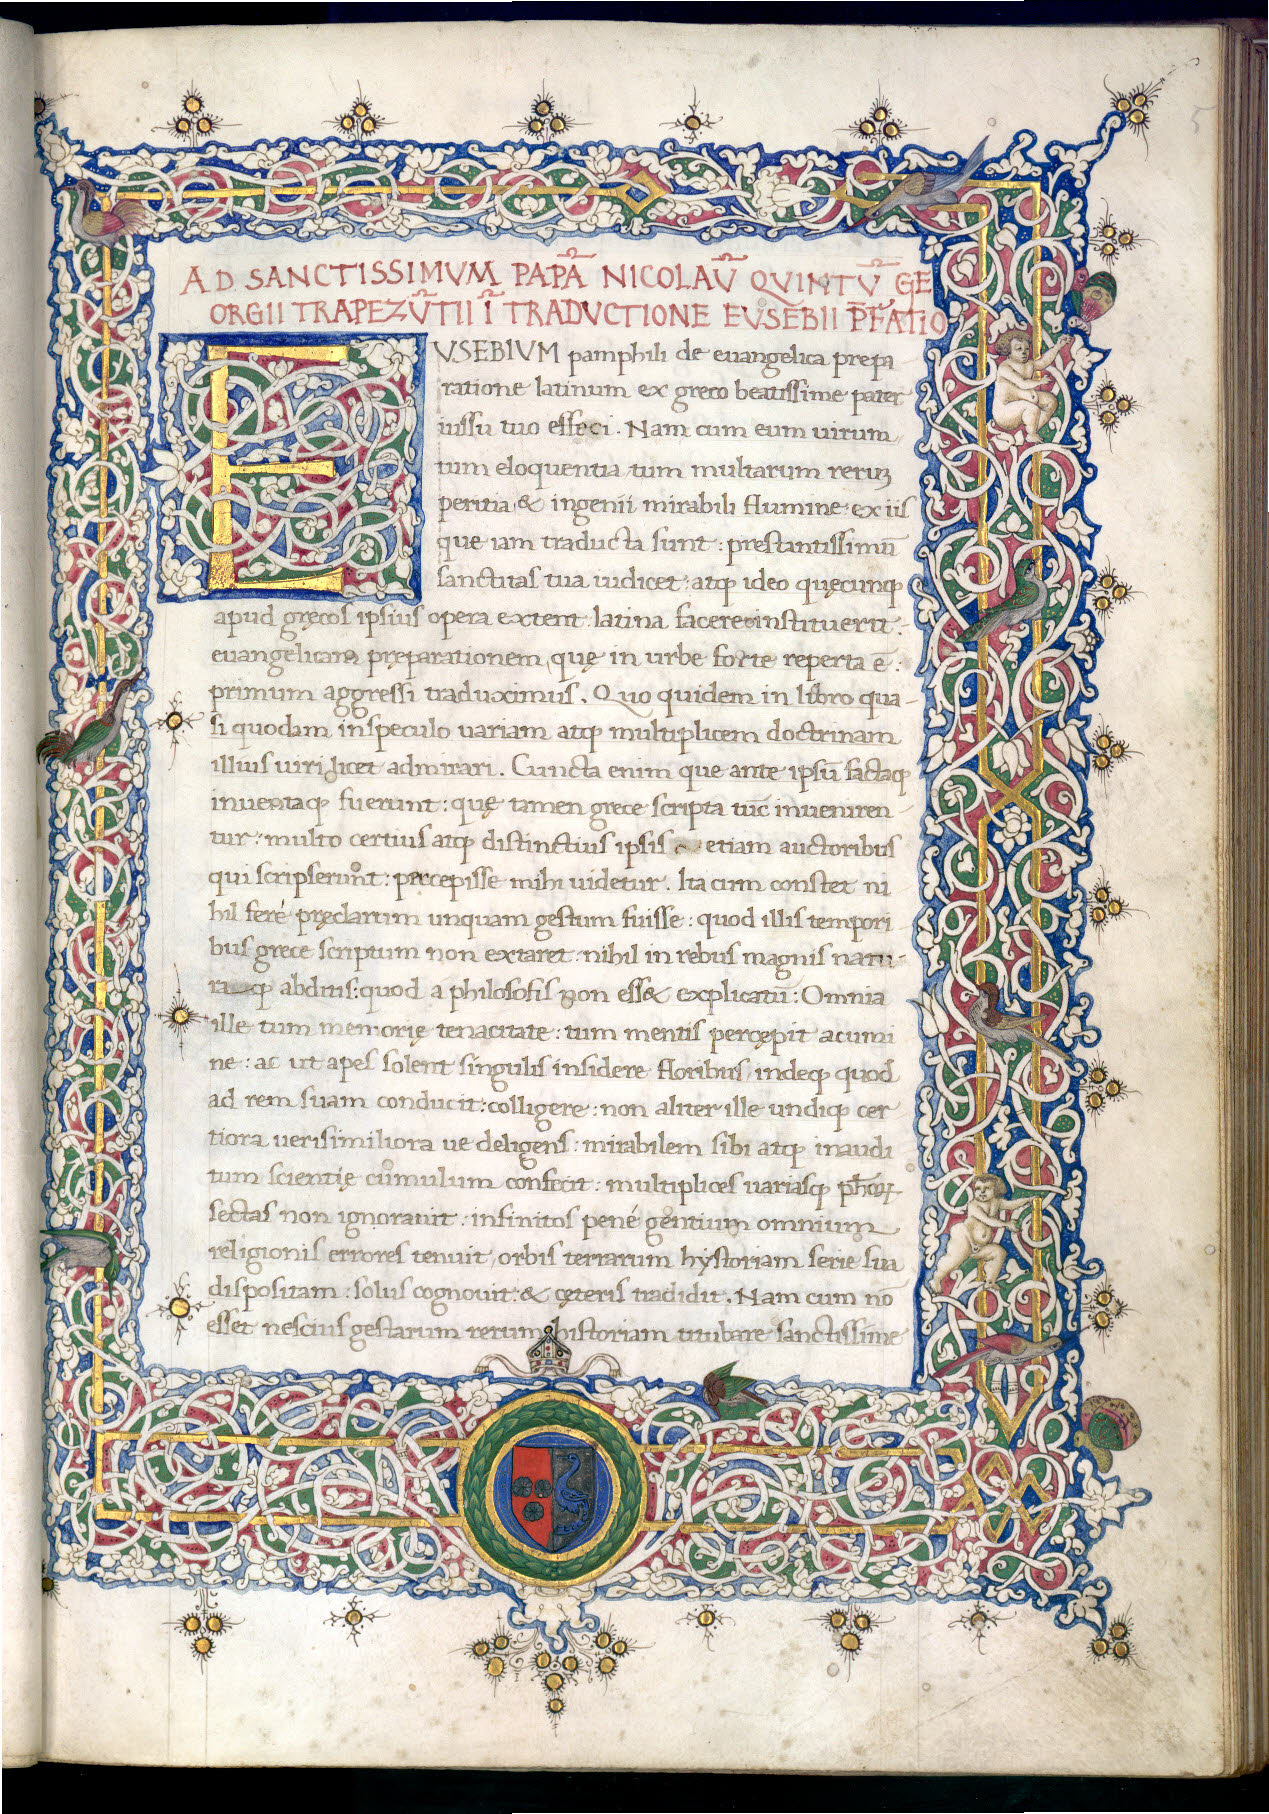 AD SANCTISSIMVM PAPĀ NICOLAŪ QVINTŪ GE
ORGII TRAPEZŪTII Ī TRADVCTIONE EVSEBII P̄FATIO
EVSEBIVM pamphili de euangelica prepa
ratione latinum ex greco beatissime pater
iussu tuo effeci. Nam cum eum uirum
tum eloquentia tum multarum rerūꝫ
peritia & ingenii mirabili flumine ex iis
que iam traducta sunt: prestantissimū
sanctitas tua iudicet: atqꝫ ideo quęcunqꝫ
apud gręcos ipsius opera extent latina facere instituerit:
euangelicam pręparationem quę in urbe forte reperta ē:
primum aggressi traduximus. Quo quidem in libro qua-
si quodam in speculo uariam atqꝫ multiplicem doctrinam
illius uiri licet admirari. Cuncta enim que ante ipsū factaqꝫ
inuentaqꝫ fuerunt: quę tamen grece scripta tūc inueniren
tur: multo certius atqꝫ distinctius ipsis etiam auctoribus
qui scripserunt: percepisse mihi uidetur. Ita cum constet ni
hil feré pręclarum unquam gestum fuisse: quod illis tempori
bus grece scriptum non extaret: nihil in rebus magnis natu-
raqꝫ abditis: quod a philosofis non ess& explicatū: Omnia
ille tum memorię tenacitate: tum mentis percępit acumi
ne: ac ut apes solent singulis insidere floribus, indeqꝫ quod
ad rem suam conducit: colligere: non aliter ille undiqꝫ cer
tiora uerisimiliora ue deligens: mirabilem sibi atqꝫ inaudi
tum scientię cumulum confecit: multiplices uariasqꝫ ph̄oꝝ
sectas non ignorauit: infinitos pené gentium omnium
religionis errores tenuit, orbis terrarum hystoriam serie sua
dispositam: solus cognouit: & cęteris tradidit. Nam cum nō
esset nescius gestarum rerum historiam titubare sanctissime